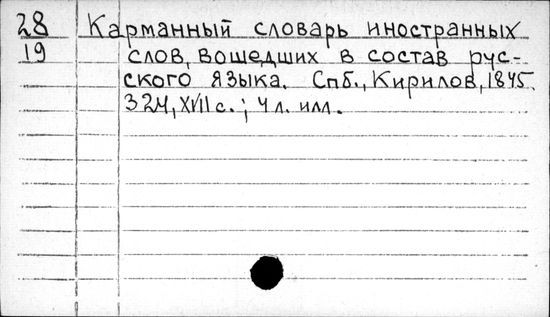 28 Карманный словарь иностранных
19 слов, вошедших в состав рус-
ского языка. Спб., Кирилов, 1845.
324, XVII с.; 4 л. илл.